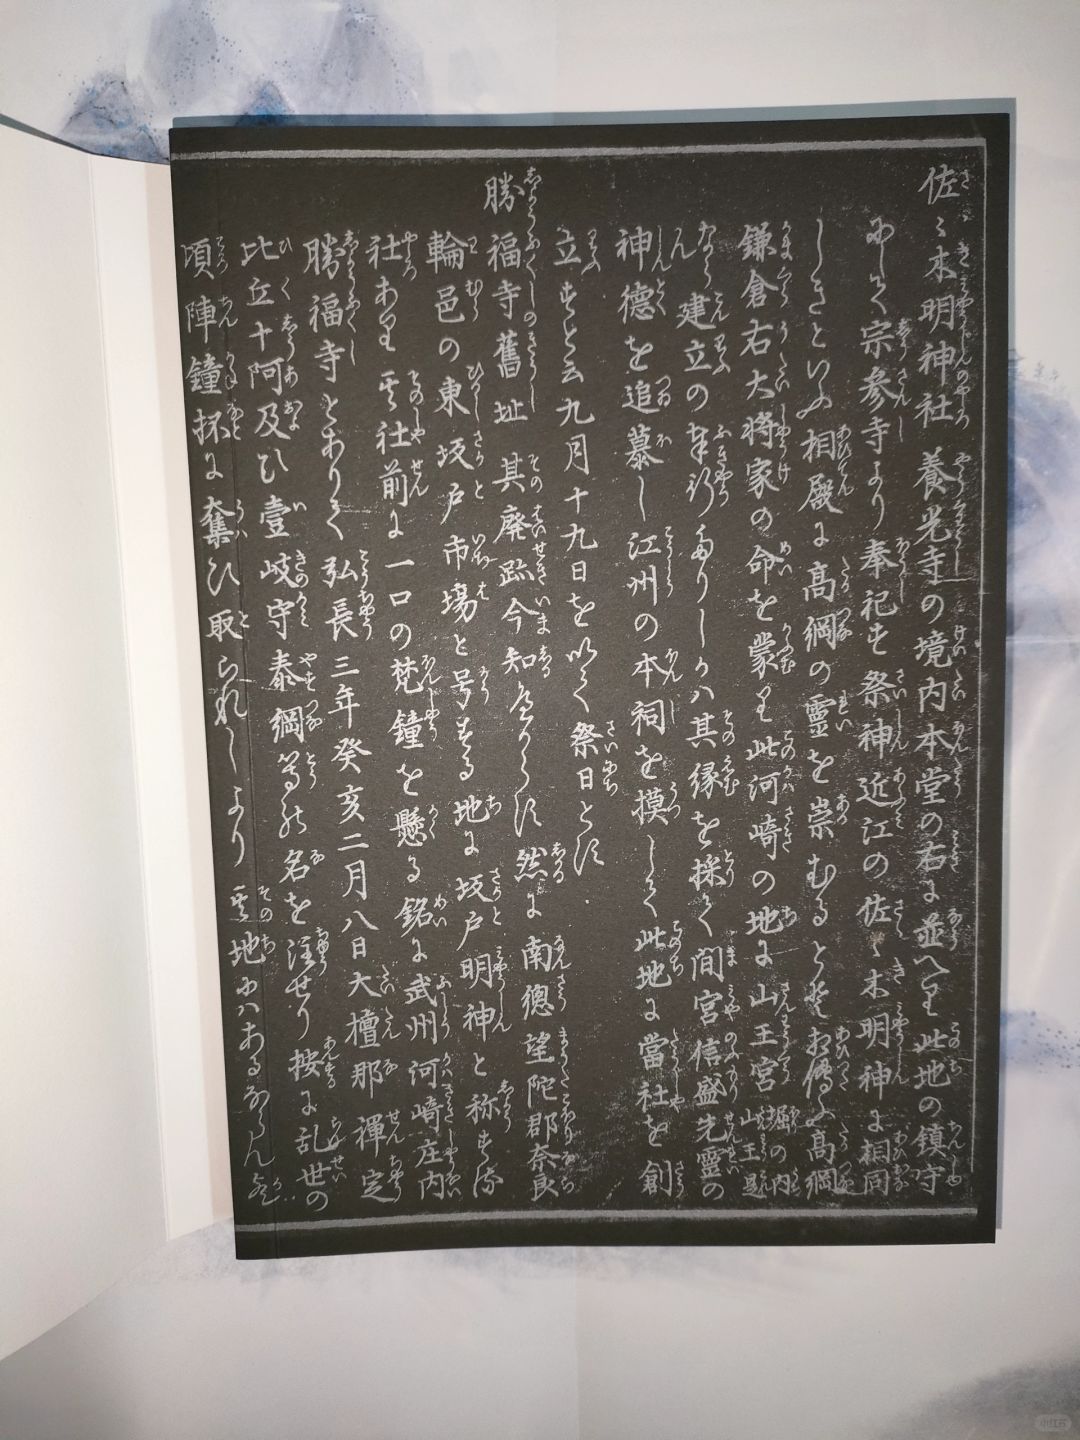 佐々木明神社 養光寺の境内本堂の右に並へり此地の鎮守
にして宗参寺より奉祀す祭神近江の佐々木明神に相同
しきといふ相殿に高綱の靈を崇むるとそ相傳ふ高綱
鎌倉右大将家の命を蒙り此河崎の地に山王宮 堀の内山王是
なり建立の奉行たりしかは其縁を採て間宮信盛先靈の
神德を追慕し江州の本祠を摸して此地に當社を創
立すと云九月十九日を以て祭日とす
勝福寺舊址 其廃趾今知へからす 然に南總望陀郡奈良
輪邑の東坂戸市場と号する地に坂戸明神と称する
社あり其社前に一口の梵鐘を懸る銘に武州河崎庄内
勝福寺とありて弘長三年癸亥二月八日大檀那禪定
比丘十阿及ひ壹岐守泰綱等の名を注せり按に乱世の
頃陣鐘抔に奪ひ取られしより其地にはあるならん